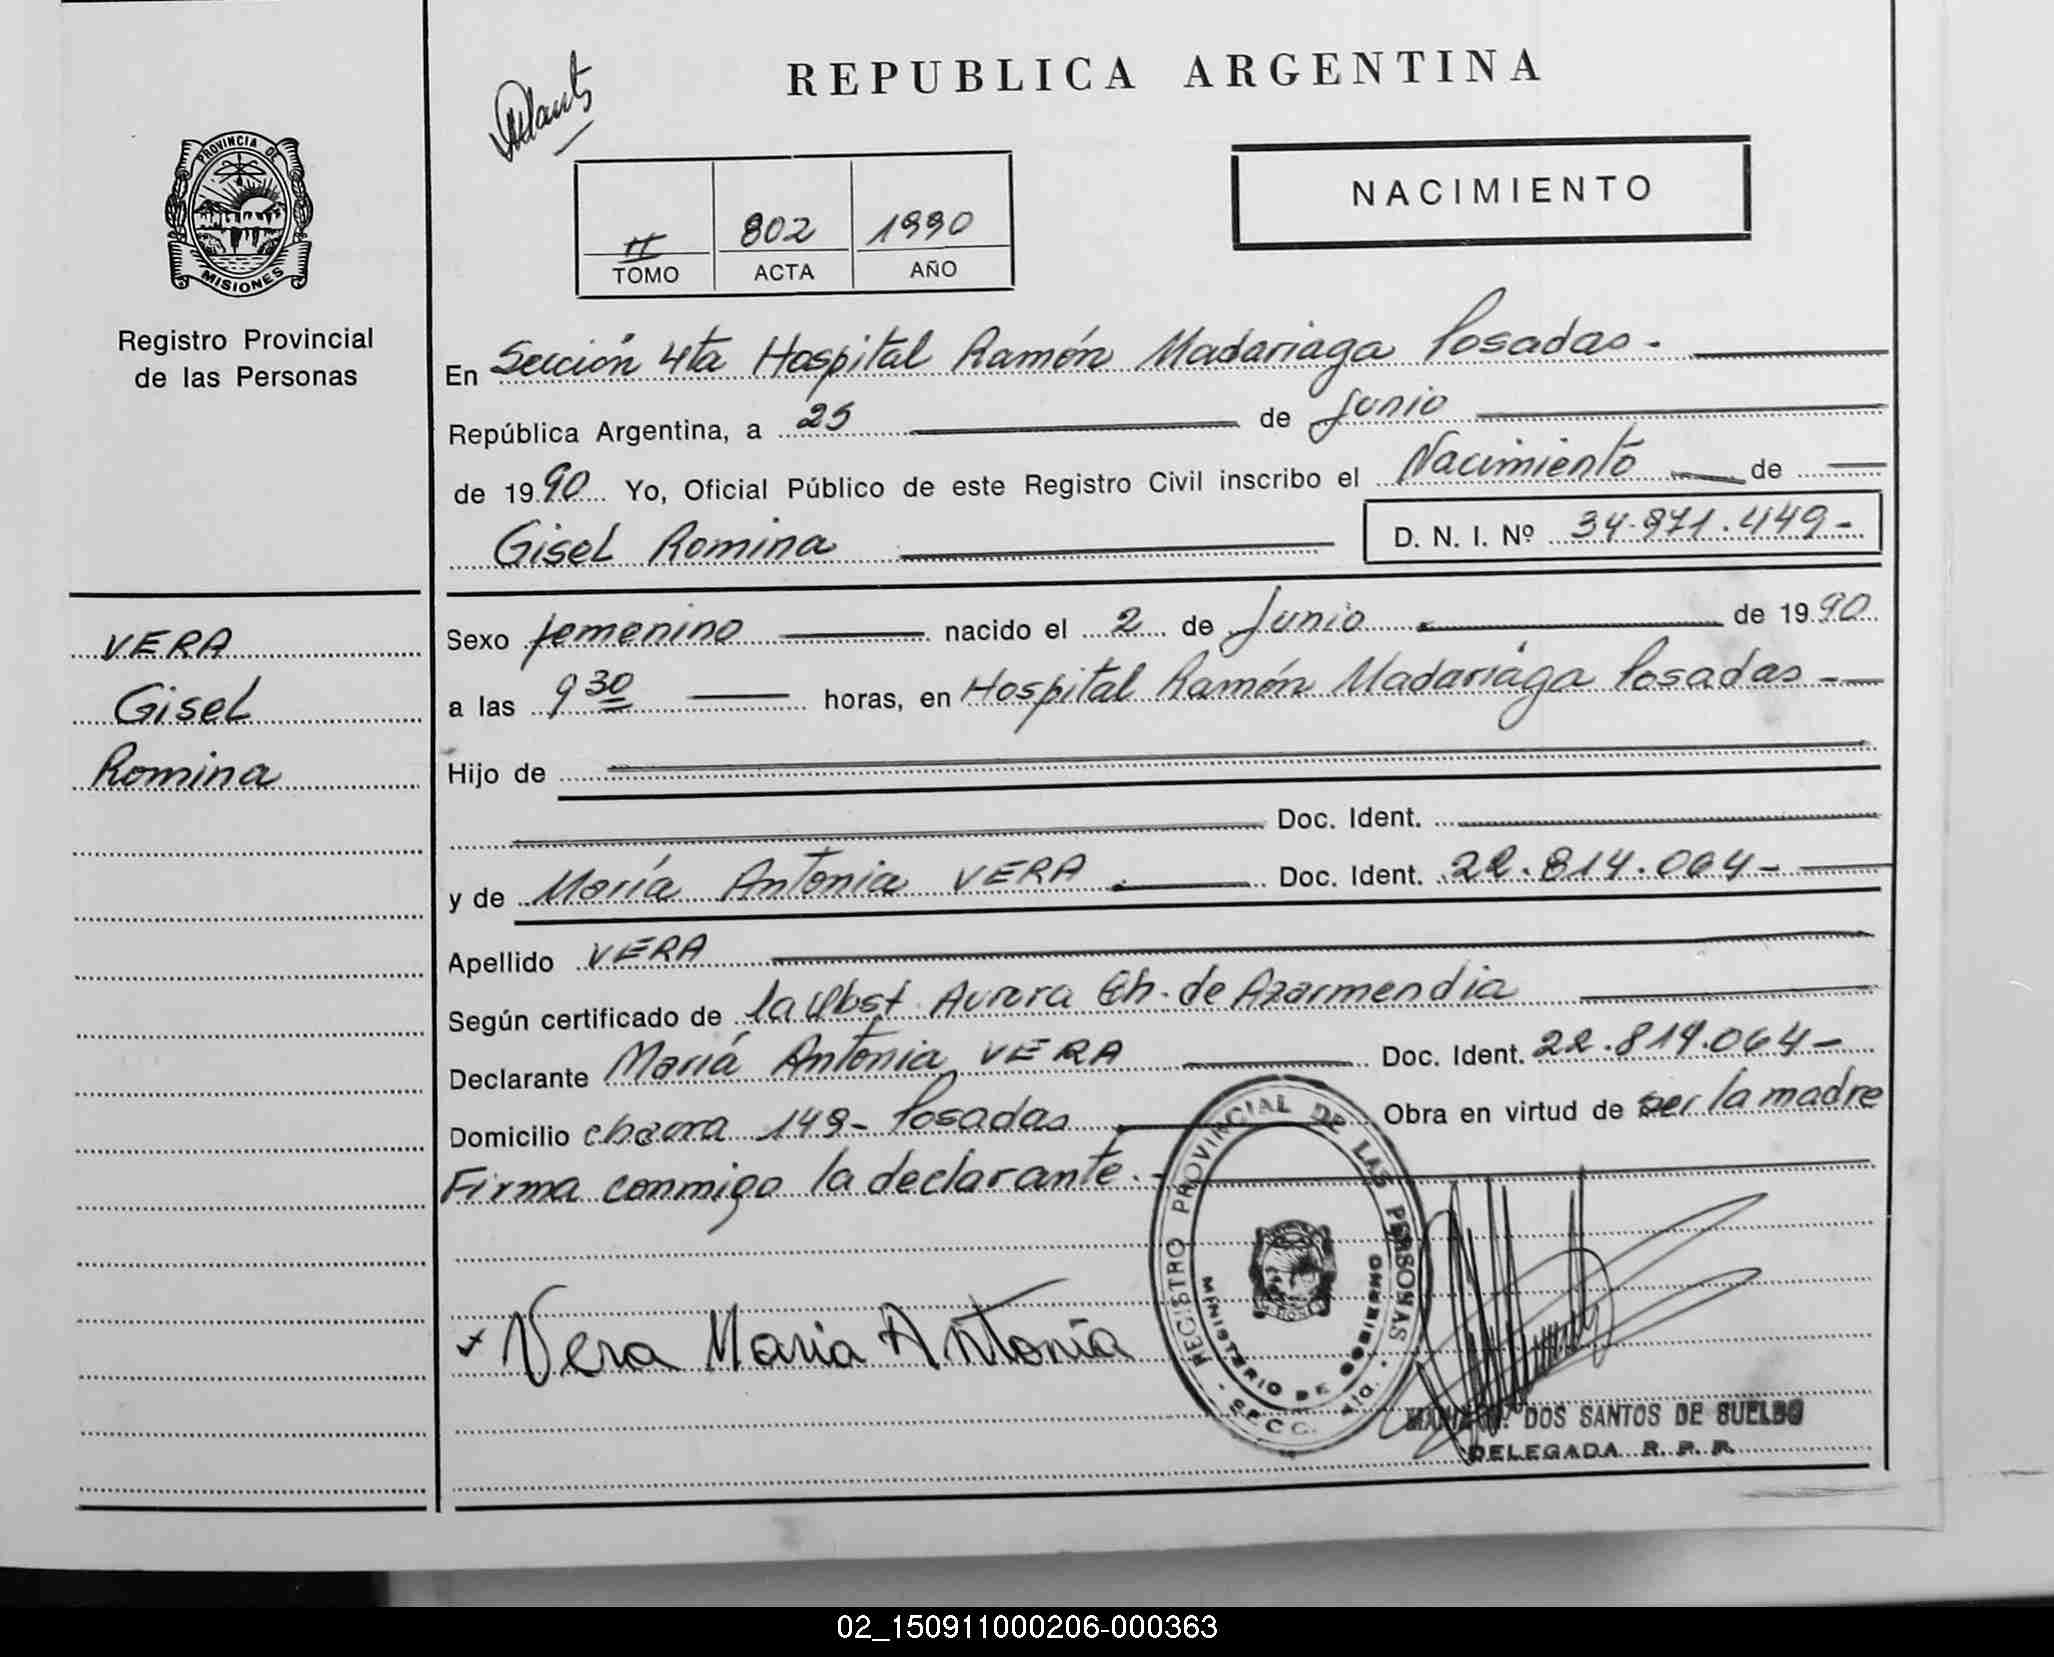 REPUBLICA ARGENTINA
PROVINCIA DE
MISIONES
Registro Provincial
de las Personas
NACIMIENTO
II 802 1990
TOMO ACTA AÑO
En Sección 4ta Hospital Ramón Madariaga Posadas.
República Argentina, a 25 de Junio
de 1990 Yo, Oficial Público de este Registro Civil inscribo el Nacimiento de
Gisel Romina D. N. I. Nº 34.971.449-
VERA
Gisel
Romina
Sexo femenino nacido el 2 de Junio de 1990
a las 9 30 horas, en Hospital Ramón Madariaga Posadas -
Hijo de
Doc. Ident.
y de María Antonia VERA. Doc. Ident. 22.814.064-
Apellido VERA
Según certificado de la Obst. Aurora Ch. de Azarmendia
Declarante María Antonia VERA Doc. Ident. 22.814.064-
Domicilio chacra 149- Posadas Obra en virtud de ser la madre
Firma conmigo la declarante.-
REGISTRO PROVINCIAL DE LAS PERSONAS
MINISTERIO DE GOBIERNO
SECC.
Vera Maria Antonia
DOS SANTOS DE SUELDO
DELEGADA R. P. P.
02_150911000206-000363